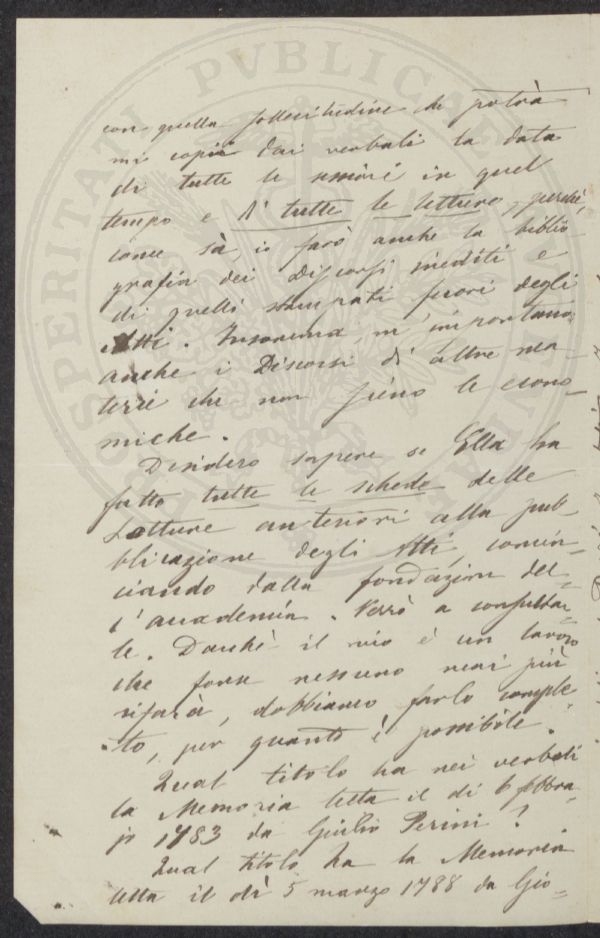 PROSPERITATI PVBLICAE
con quella sollecitudine che potrà
mi copii dai verbali la data
di tutte le sessioni in quel
tempo e di tutte le letture, perchè,
come sà, io farò anche la biblio
grafia dei Discorsi inediti e
di quelli stampati fuori degli
Atti. Insomma, m'importano
anche i Discorsi di altre ma-
terie che non sieno le econo-
miche.
Desidero sapere se Ella ha
fatto tutte le schede delle
Letture anteriori alla pub-
blicazione degli Atti, comin-
ciando dalla fondazione del-
l'accademia. Verrò a consultar-
le. Danchè il mio è un lavoro
che forse nessuno mai più
rifarà, dobbiamo farlo comple-
to, per quanto è possibile.
Qual titolo ha nei verbali
la Memoria letta il dì 6 febbra-
jo 1783 da Giulio Perini?
Qual titolo ha la Memoria
letta il dì 5 marzo 1788 da Gio-